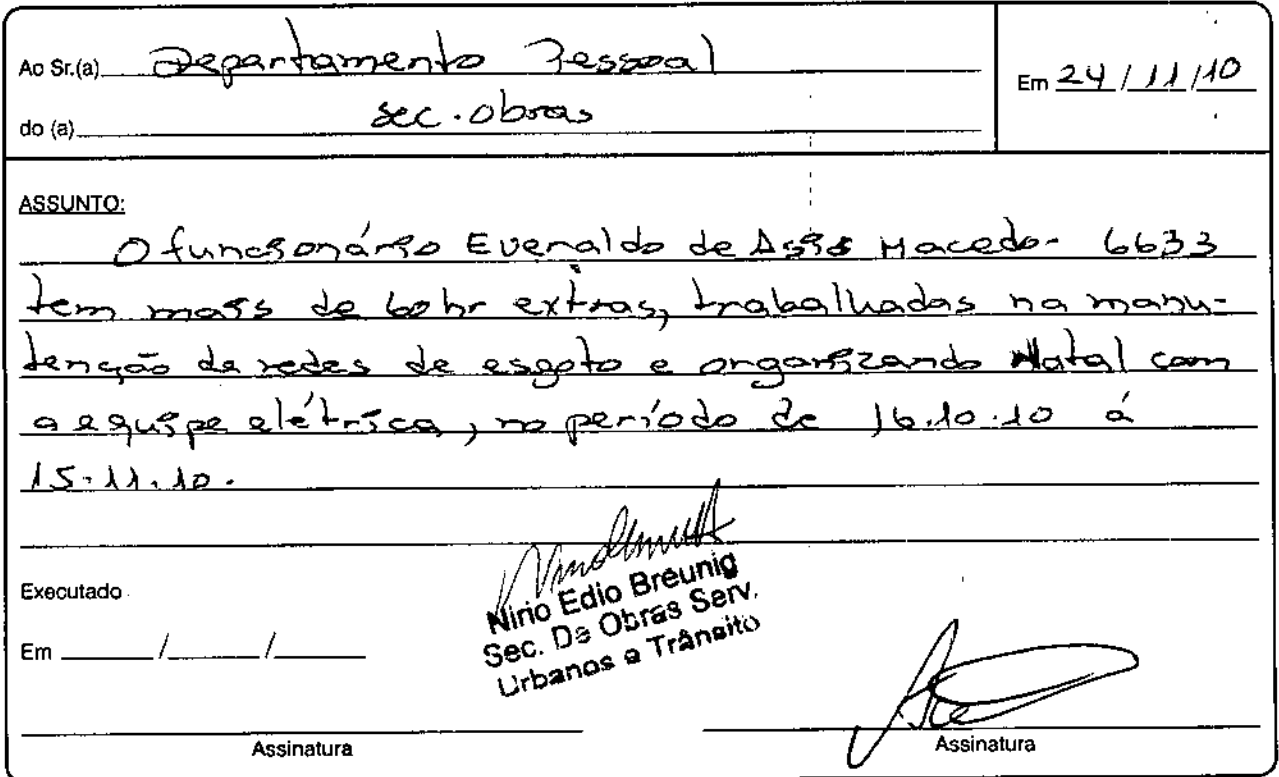 Ao Sr.(a) Departamento Pessoal
do (a) sec. obras
Em 24/11/10
ASSUNTO:
O funcionário Evenaldo de Assis Macedo- 6633
tem mais de 60 hr extras, trabalhadas na manu-
tenção de redes de esgoto e organizando Natal com
a equipe elétrica, no período de 16.10.10 á
15.11.10.
Nirio Edio Breunig
Sec. De Obras Serv.
Urbanos e Trânsito
Executado
Em / /
Assinatura
Assinatura